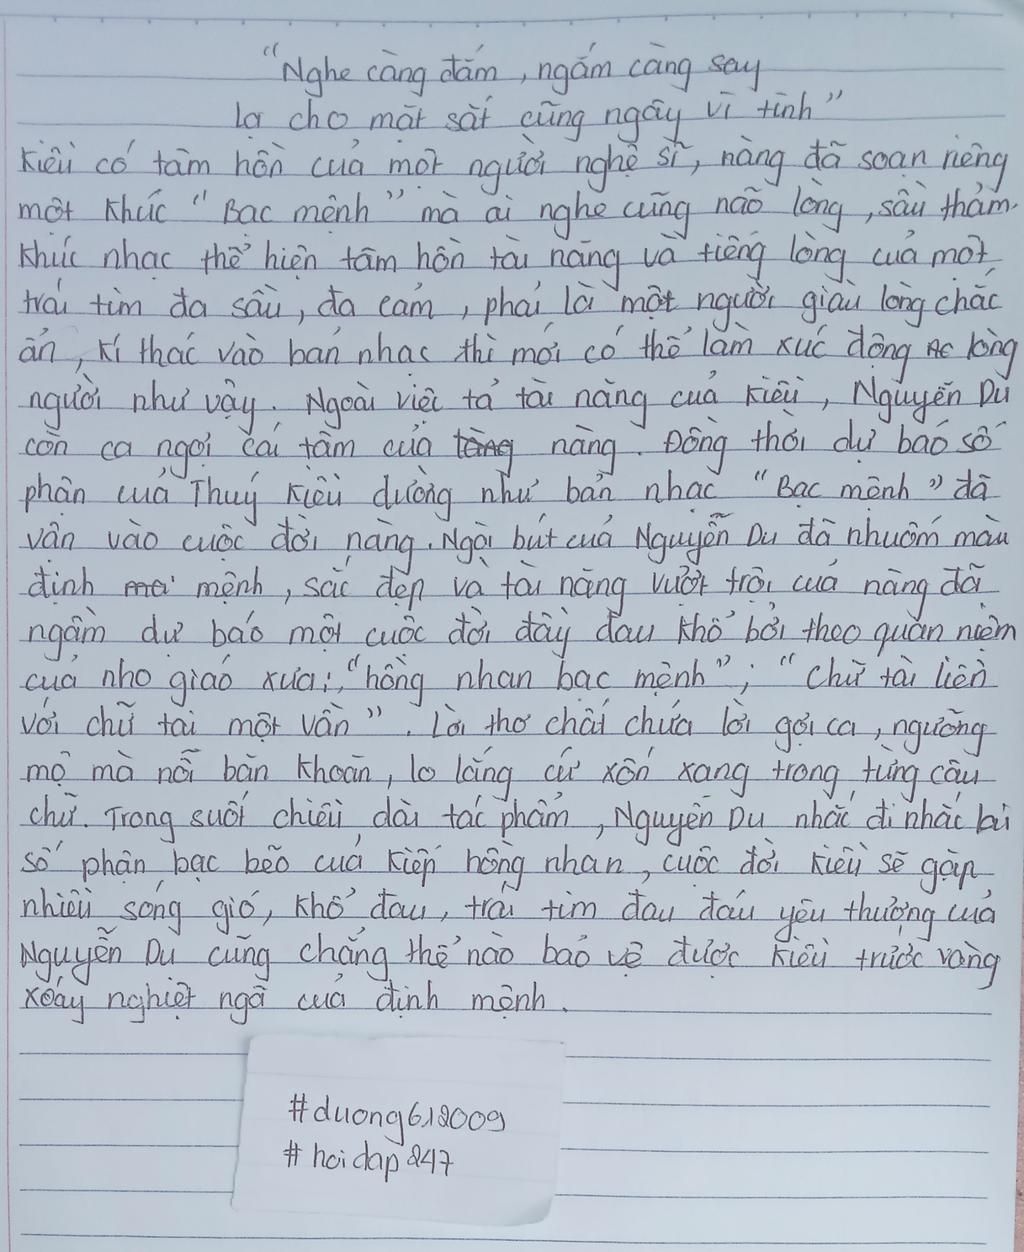 "Nghe càng đắm, ngắm càng say
Lạ cho mặt sắt cũng ngây vì tình"
Kiều có tâm hồn của một người nghệ sĩ, nàng đã soạn riêng
một khúc "Bạc mệnh" mà ai nghe cũng não lòng, sầu thảm.
Khúc nhạc thể hiện tâm hồn tài năng và tiếng lòng của một
trái tim đa sầu, đa cảm, phải là một người giàu lòng chắc
ẩn, kí thác vào bản nhạc thì mới có thể làm xúc động lòng
người như vậy. Ngoài việc tả tài năng của Kiều, Nguyễn Du
còn ca ngợi cái tâm của nàng. Đồng thời dự báo số
phận của Thuý Kiều dường như bản nhạc "Bạc mệnh" đã
vận vào cuộc đời nàng. Ngòi bút của Nguyễn Du đã nhuốm màu
định mệnh, sắc đẹp và tài năng vượt trội của nàng đã
ngầm dự báo một cuộc đời đầy đau khổ bởi theo quan niệm
của nho giáo xưa: "hồng nhan bạc mệnh"; "Chữ tài liền
với chữ tai một vần". Lời thơ chất chứa lời gợi ca, ngưỡng
mộ mà nỗi băn khoăn, lo lắng cứ xốn xang trong từng câu
chữ. Trong suốt chiều dài tác phẩm, Nguyễn Du nhắc đi nhắc lại
số phận bạc bẽo của kiếp hồng nhan, cuộc đời Kiều sẽ gặp
nhiều sóng gió, khổ đau, trái tim đau đáu yêu thương của
Nguyễn Du cũng chẳng thể nào bảo vệ được Kiều trước vòng
xoáy nghiệt ngã của định mệnh.
#duong612009
#hoidap247